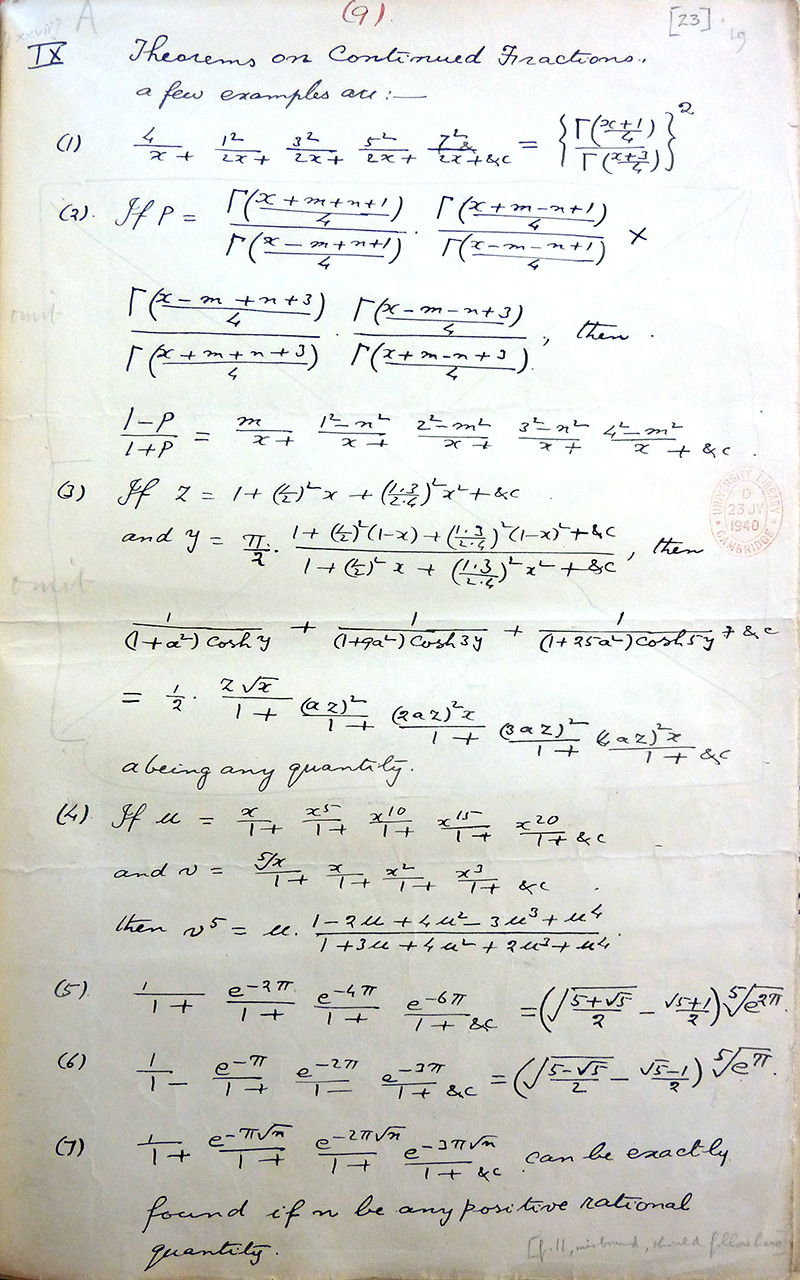 (9).
[23]
19
(xxvii) A
IX Theorems on Continued Fractions.
a few examples are :—
(1) 4/x+ 1²/2x+ 3²/2x+ 5²/2x+ 7²/2x+&c = {Γ((x+1)/4)/Γ((x+3)/4)}²
(2). If P = Γ((x+m+n+1)/4)/Γ((x-m+n+1)/4) · Γ((x+m-n+1)/4)/Γ((x-m-n+1)/4) ×
omit
Γ((x-m+n+3)/4)/Γ((x+m+n+3)/4) · Γ((x-m-n+3)/4)/Γ((x+m-n+3)/4), then
(1-P)/(1+P) = m/x+ (1²-n²)/x+ (2²-m²)/x+ (3²-n²)/x+ (4²-m²)/x+ &c.
(3) If z = 1 + (1/2)²x + (1·3/2·4)²x² + &c
and y = π/2 · (1 + (1/2)²(1-x) + (1·3/2·4)²(1-x)² + &c)/(1 + (1/2)²x + (1·3/2·4)²x² + &c), then
omit
1/((1+a²) cosh y) + 1/((1+9a²) cosh 3y) + 1/((1+25a²) cosh 5y) + &c
= 1/2 · z√x/1+ (az)²/1+ (2az)²x/1+ (3az)²/1+ (4az)²x/1+ &c
a being any quantity.
(4) If u = x/1+ x⁵/1+ x¹⁰/1+ x¹⁵/1+ x²⁰/1+ &c
and v = ⁵√x/1+ x/1+ x²/1+ x³/1+ &c
then v⁵ = u · (1-2u+4u²-3u³+u⁴)/(1+3u+4u²+2u³+u⁴).
(5) 1/1+ e^{-2π}/1+ e^{-4π}/1+ e^{-6π}/1+ &c = (√((5+√5)/2) - (√5+1)/2) ⁵√(e^{2π}).
(6) 1/1- e^{-π}/1+ e^{-2π}/1- e^{-3π}/1+ &c = (√((5-√5)/2) - (√5-1)/2) ⁵√(e^π).
(7) 1/1+ e^{-π√n}/1+ e^{-2π√n}/1+ e^{-3π√n}/1+ &c can be exactly
found if n be any positive rational
quantity.
[f. 11, misbound, should follow here]
UNIVERSITY LIBRARY
D
23 JY
1940
CAMBRIDGE